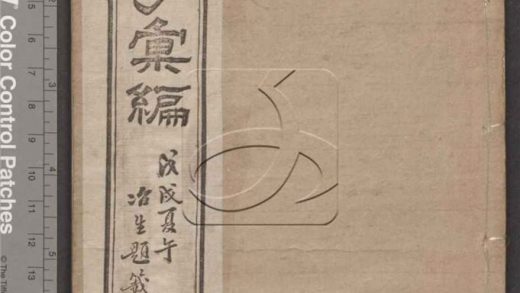 彙編
戊戌夏午
冶生題籤
Color Control Patches
© The Tiff
5
6
7
8
9
10
11
12
13
2
3
4
5